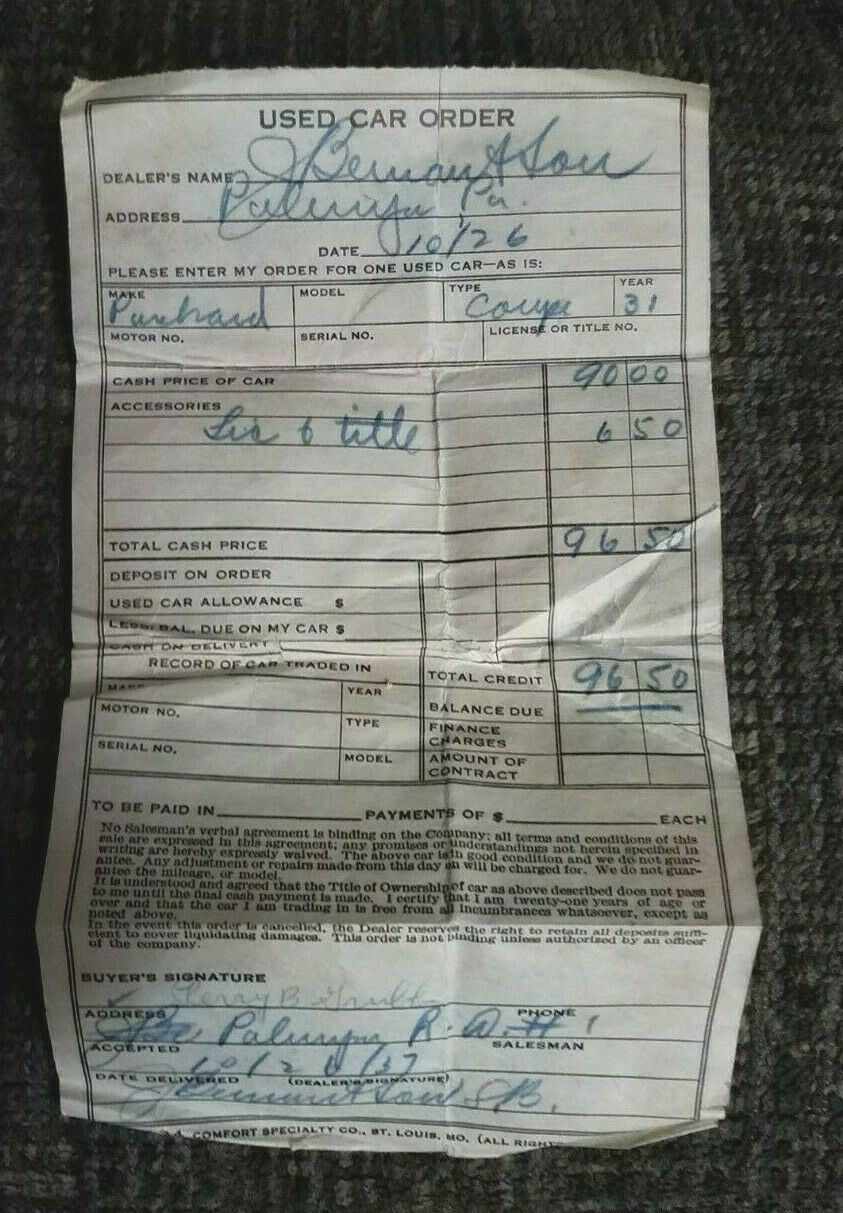 USED CAR ORDER
DEALER'S NAME J Beman & Son
ADDRESS Palmyra Pa.
DATE 10/26
PLEASE ENTER MY ORDER FOR ONE USED CAR—AS IS:
MAKE MODEL TYPE YEAR
Coupe 31
MOTOR NO. SERIAL NO. LICENSE OR TITLE NO.
CASH PRICE OF CAR 90 00
ACCESSORIES
Lis & title 6 50
TOTAL CASH PRICE 96 50
DEPOSIT ON ORDER
USED CAR ALLOWANCE $
LESS: BAL. DUE ON MY CAR $
CASH ON DELIVERY
RECORD OF CAR TRADED IN TOTAL CREDIT 96 50
MAKE YEAR BALANCE DUE
MOTOR NO. TYPE FINANCE CHARGES
SERIAL NO. MODEL AMOUNT OF CONTRACT
TO BE PAID IN PAYMENTS OF $ EACH
No Salesman's verbal agreement is binding on the Company; all terms and conditions of this
sale are expressed in this agreement; any promises or understandings not herein specified in
writing are hereby expressly waived. The above car is in good condition and we do not guar-
antee. Any adjustment or repairs made from this day on will be charged for. We do not guar-
antee the mileage, or model.
It is understood and agreed that the Title of Ownership of car as above described does not pass
to me until the final cash payment is made. I certify that I am twenty-one years of age or
over and that the car I am trading in is free from all incumbrances whatsoever, except as
noted above.
In the event this order is cancelled, the Dealer reserves the right to retain all deposits suffi-
cient to cover liquidating damages. This order is not binding unless authorized by an officer
of the company.
BUYER'S SIGNATURE
ADDRESS PHONE
Palmyra R. D. # 1
ACCEPTED SALESMAN
10/26/37
DATE DELIVERED (DEALER'S SIGNATURE)
COMFORT SPECIALTY CO., ST. LOUIS, MO. (ALL RIGH